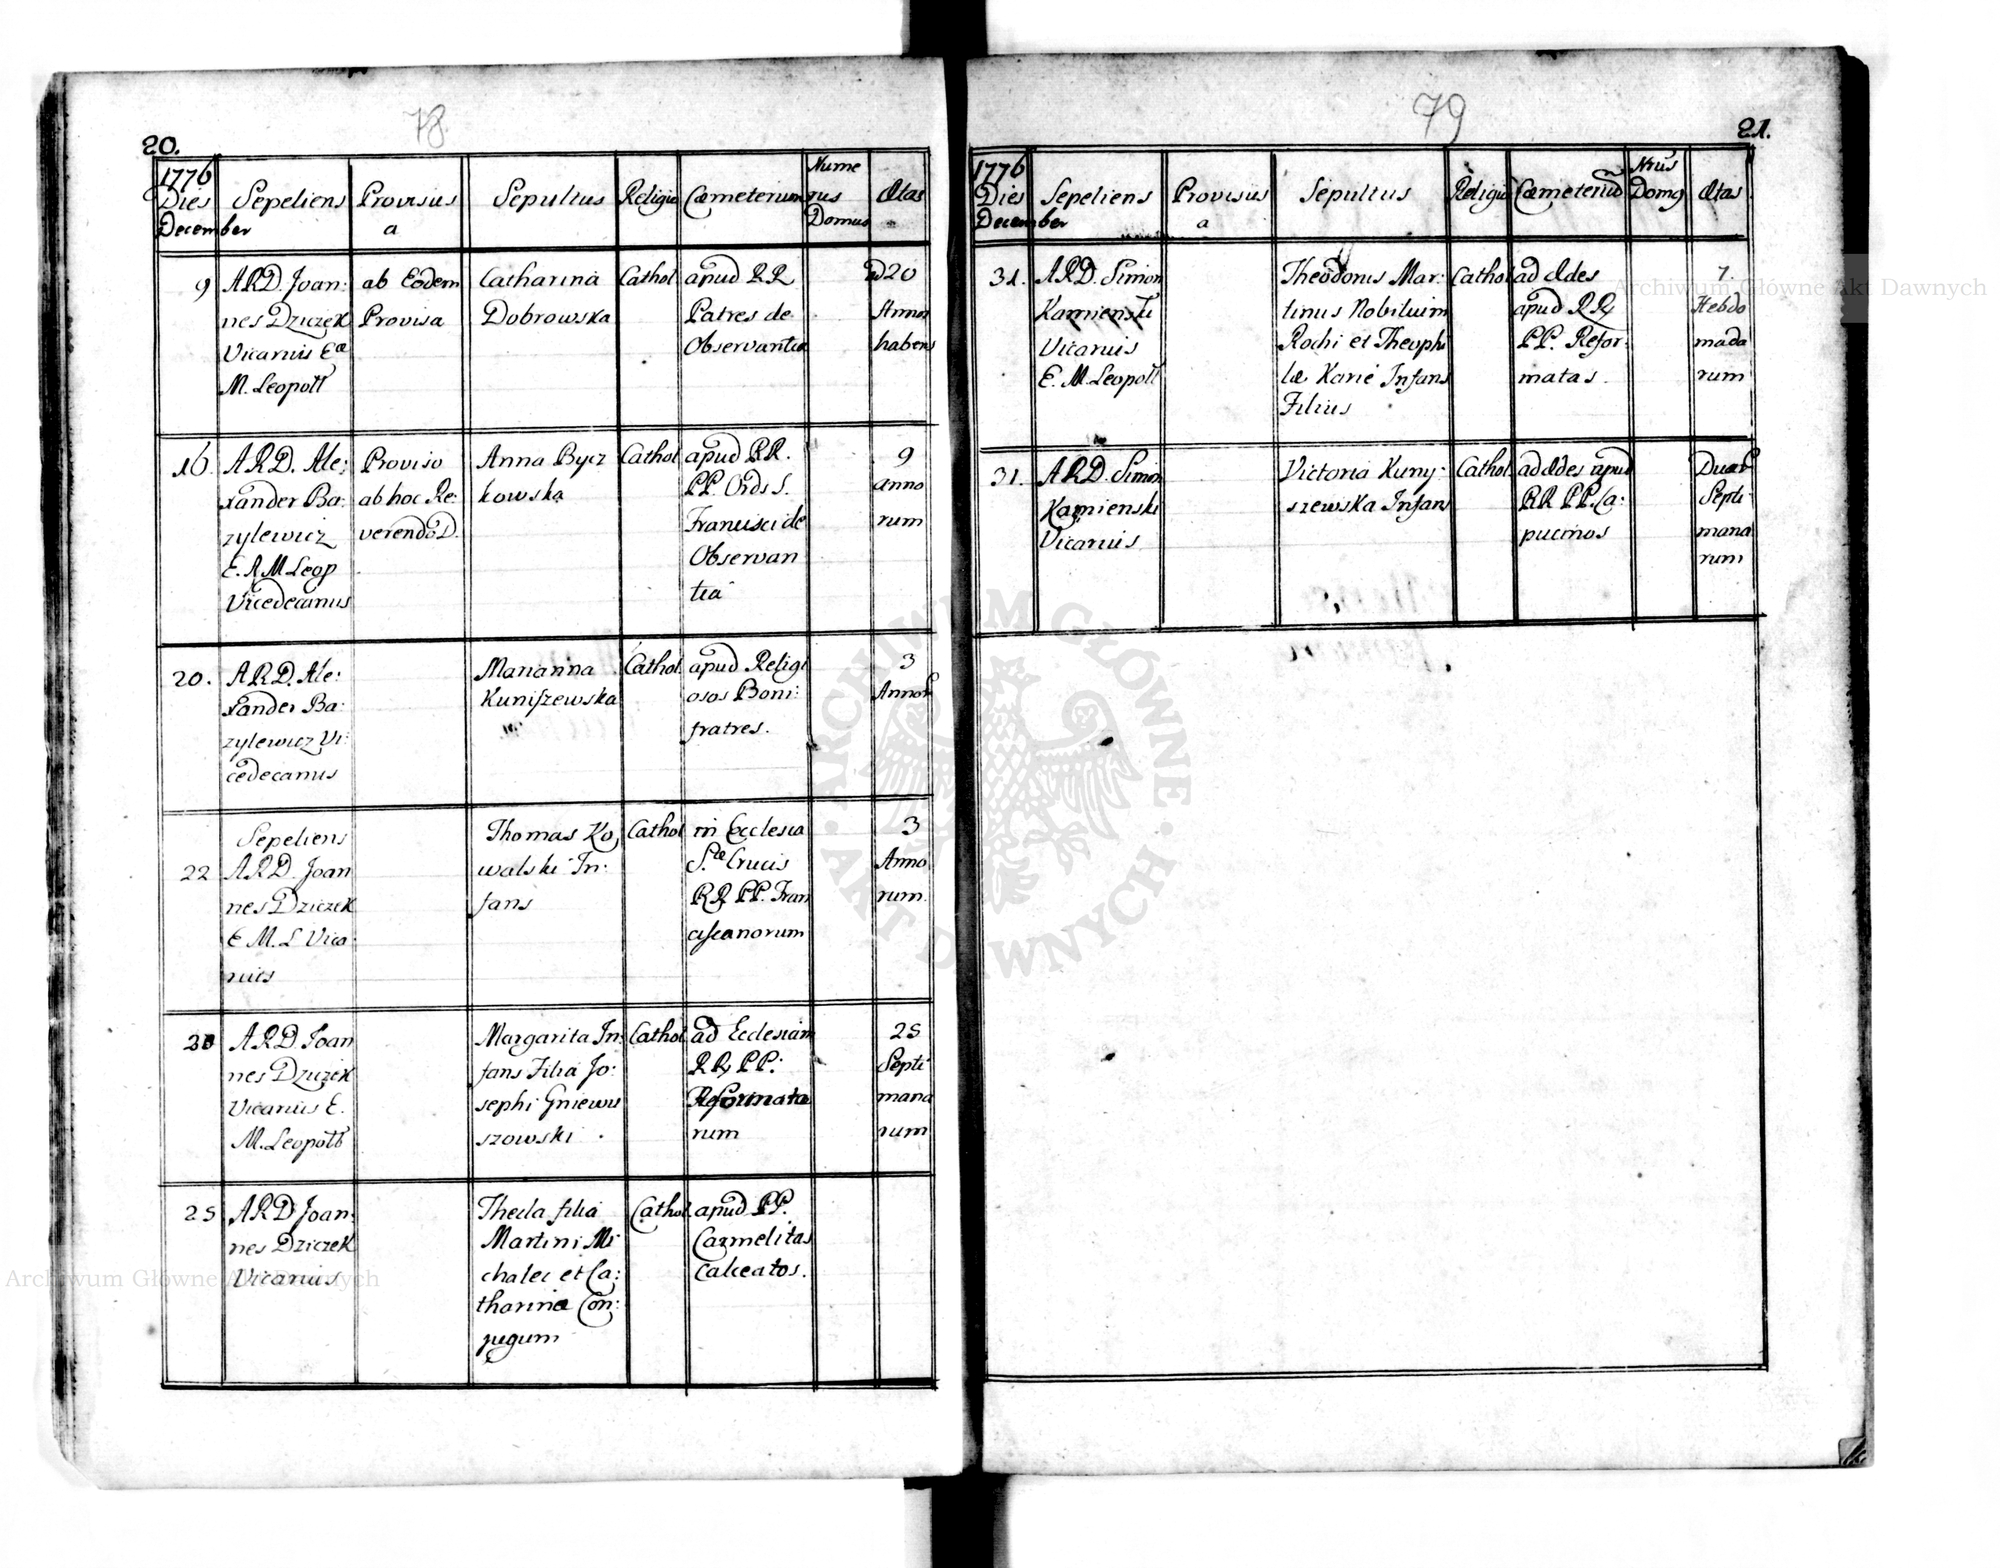 78
20.
1776
Dies
December
Sepeliens
Provisus
a
Sepultus
Religio
Cæmeterium
Nume
rus
Domus
Ætas
9
A.R.D. Joan:
nes Dziczek
Vicarius Eæ
M. Leopoll
ab Eodem
Provisa
Catharina
Dobrowska
Cathol
apud RR
Patres de
Observantia
20
Annor
habens
16.
A.R.D. Ale:
xander Ba:
zylewicz
E. A M Leop
Vicedecanus
Proviso
ab hoc Re
verendo D.
Anna Bycz
kowska
Cathol
apud RR.
PP. Ords S.
Francisci de
Observan
tia
9
anno
rum
20.
A.R.D. Ale:
xander Ba:
zylewicz Vi:
cedecanus
Marianna
Kuniszewska
Cathol.
apud Religi
osos Boni:
fratres.
3
Annor
22
Sepeliens
A.R.D. Joan
nes Dziczek
E M. L Vica
rius
Thomas Ko
walski In:
fans
Cathol
in Ecclesia
S.æ Crucis
RR PP. Fran
ciscanorum
3
Anno
rum.
A.R.D Joan
nes Dziczek
Vicarius E.
M. Leopoll
Margarita In:
fans Filia Jo:
sephi Gniewu
szowski.
Cathol
ad Ecclesiam
RR PP:
Reformata
rum
25
Septi
mana
rum
25
A.R.D Joan:
nes Dziczek
Vicarius
Thecla filia
Martini Mi
chalec et Ca:
tharinæ Con:
jugum
Cathol.
apud PP.
Carmelitas
Calceatos.
79
21.
1776
Dies
December
Sepeliens
Provisus
a
Sepultus
Religio
Cæmeteriu
Nrus
Domq
Ætas
31.
A.R.D. Simon
Kamienski
Vicarius
E. M. Leopoll
Theodorus Mar:
tinus Nobilium
Rochi et Theophi
læ Karie Infans
Filius
Cathol
ad Ædes
apud RR
PP. Refor:
matas.
7.
Hebdo
mada
rum
31.
A.R.D. Simon
Kamienski
Vicarius
Victoria Kuny:
szewska Infans
Cathol.
ad Ædes apud
RR PP. Ca:
pucinos
Duar
Septi
mana
rum
ARCHIWUM GŁÓWNE AKT DAWNYCH
Archiwum Główne Akt Dawnych
Archiwum Główne Akt Dawnych